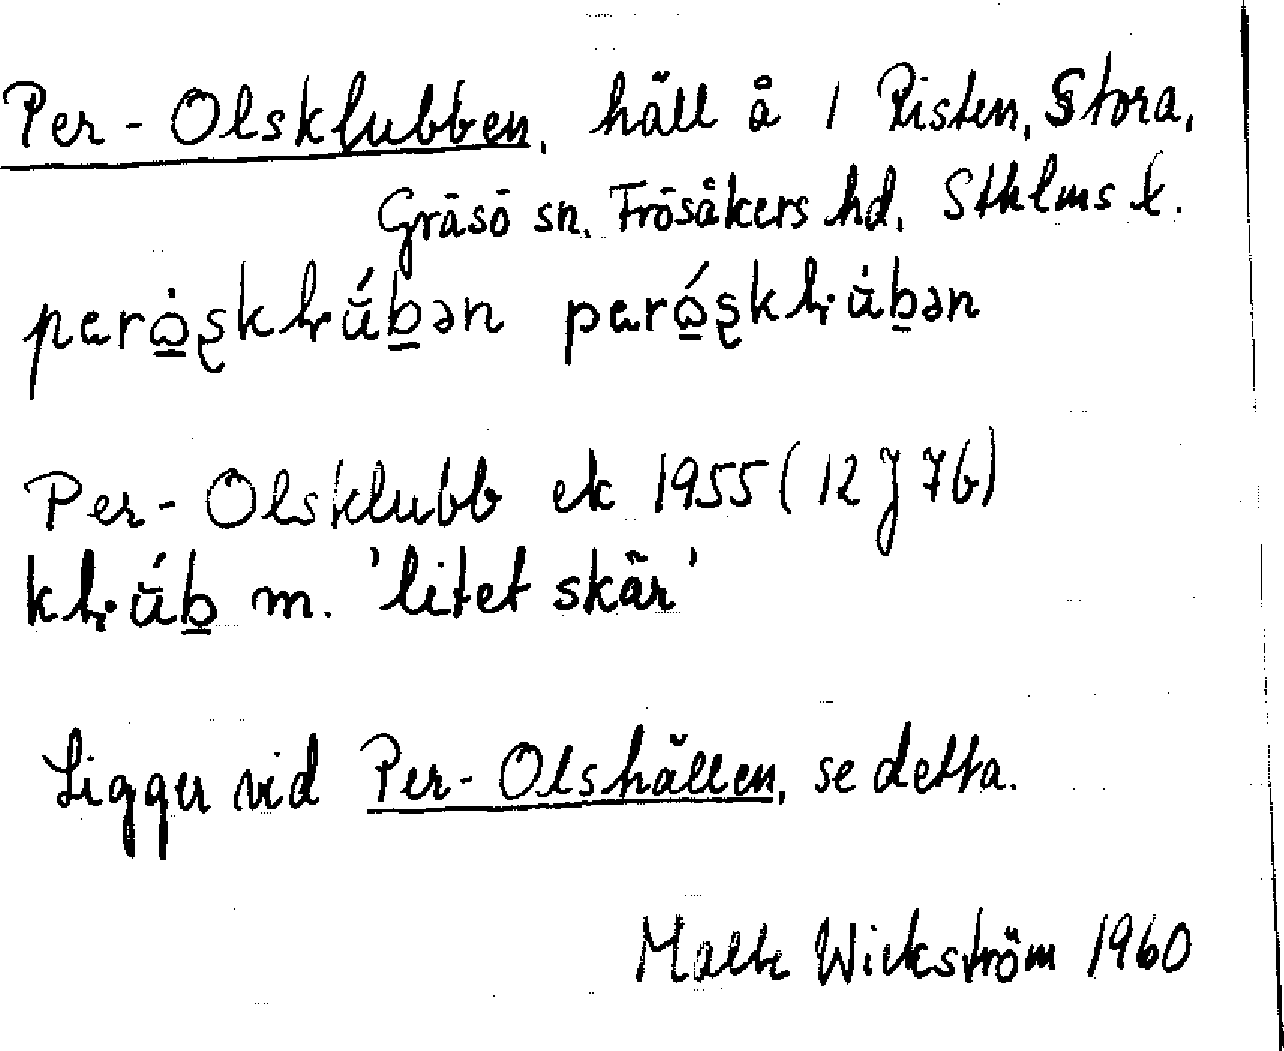 Per-Olsklubben, häll å 1 Risten, Stora,
Gräsö sn. Frösåkers hd. Sthlms l.
Per-Olsklubb ek 1955 (12J 7b)
m. 'litet skär'
Ligger vid Per-Olshällen, se detta.
Malte Wickström 1960